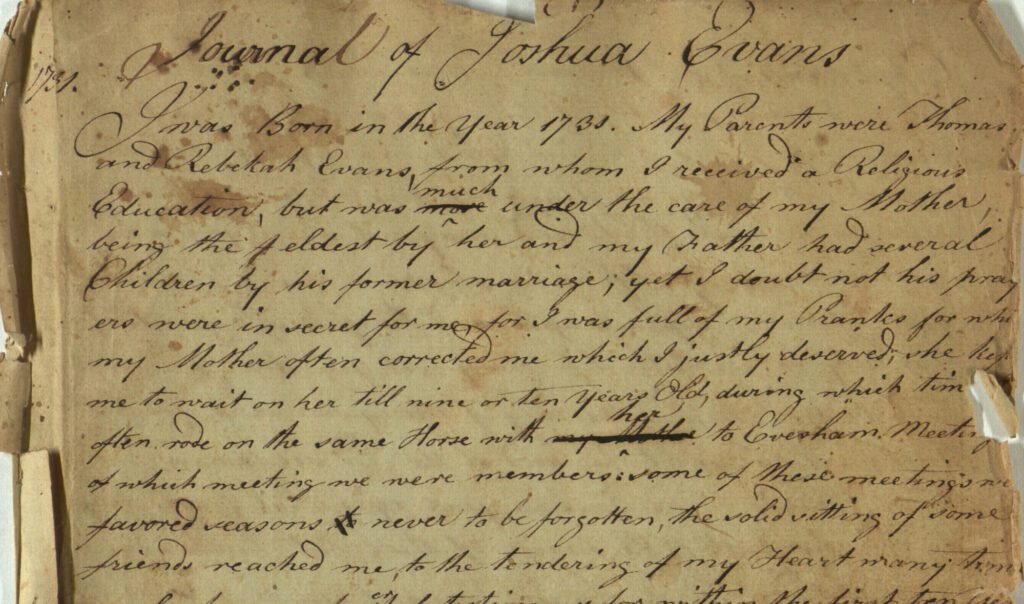 Journal of Joshua Evans
1731.
I was Born in the Year 1731. My Parents were Thomas
and Rebekah Evans, from whom I received a Religious
much
Education, but was more under the care of my Mother,
being the eldest by her and my Father had several
Children by his former marriage; yet I doubt not his pray
ers were in secret for me, for I was full of my Pranks for
my Mother often corrected me which I justly deserved; she
me to wait on her till nine or ten Years Old, during which
her
often rode on the same Horse with my Mothe to Evesham Meeting
of which meeting we were members: some of these meetings
favored seasons never to be forgotten, the solid sitting of some
friends reached me, to the tendering of my Heart many
within the first ten